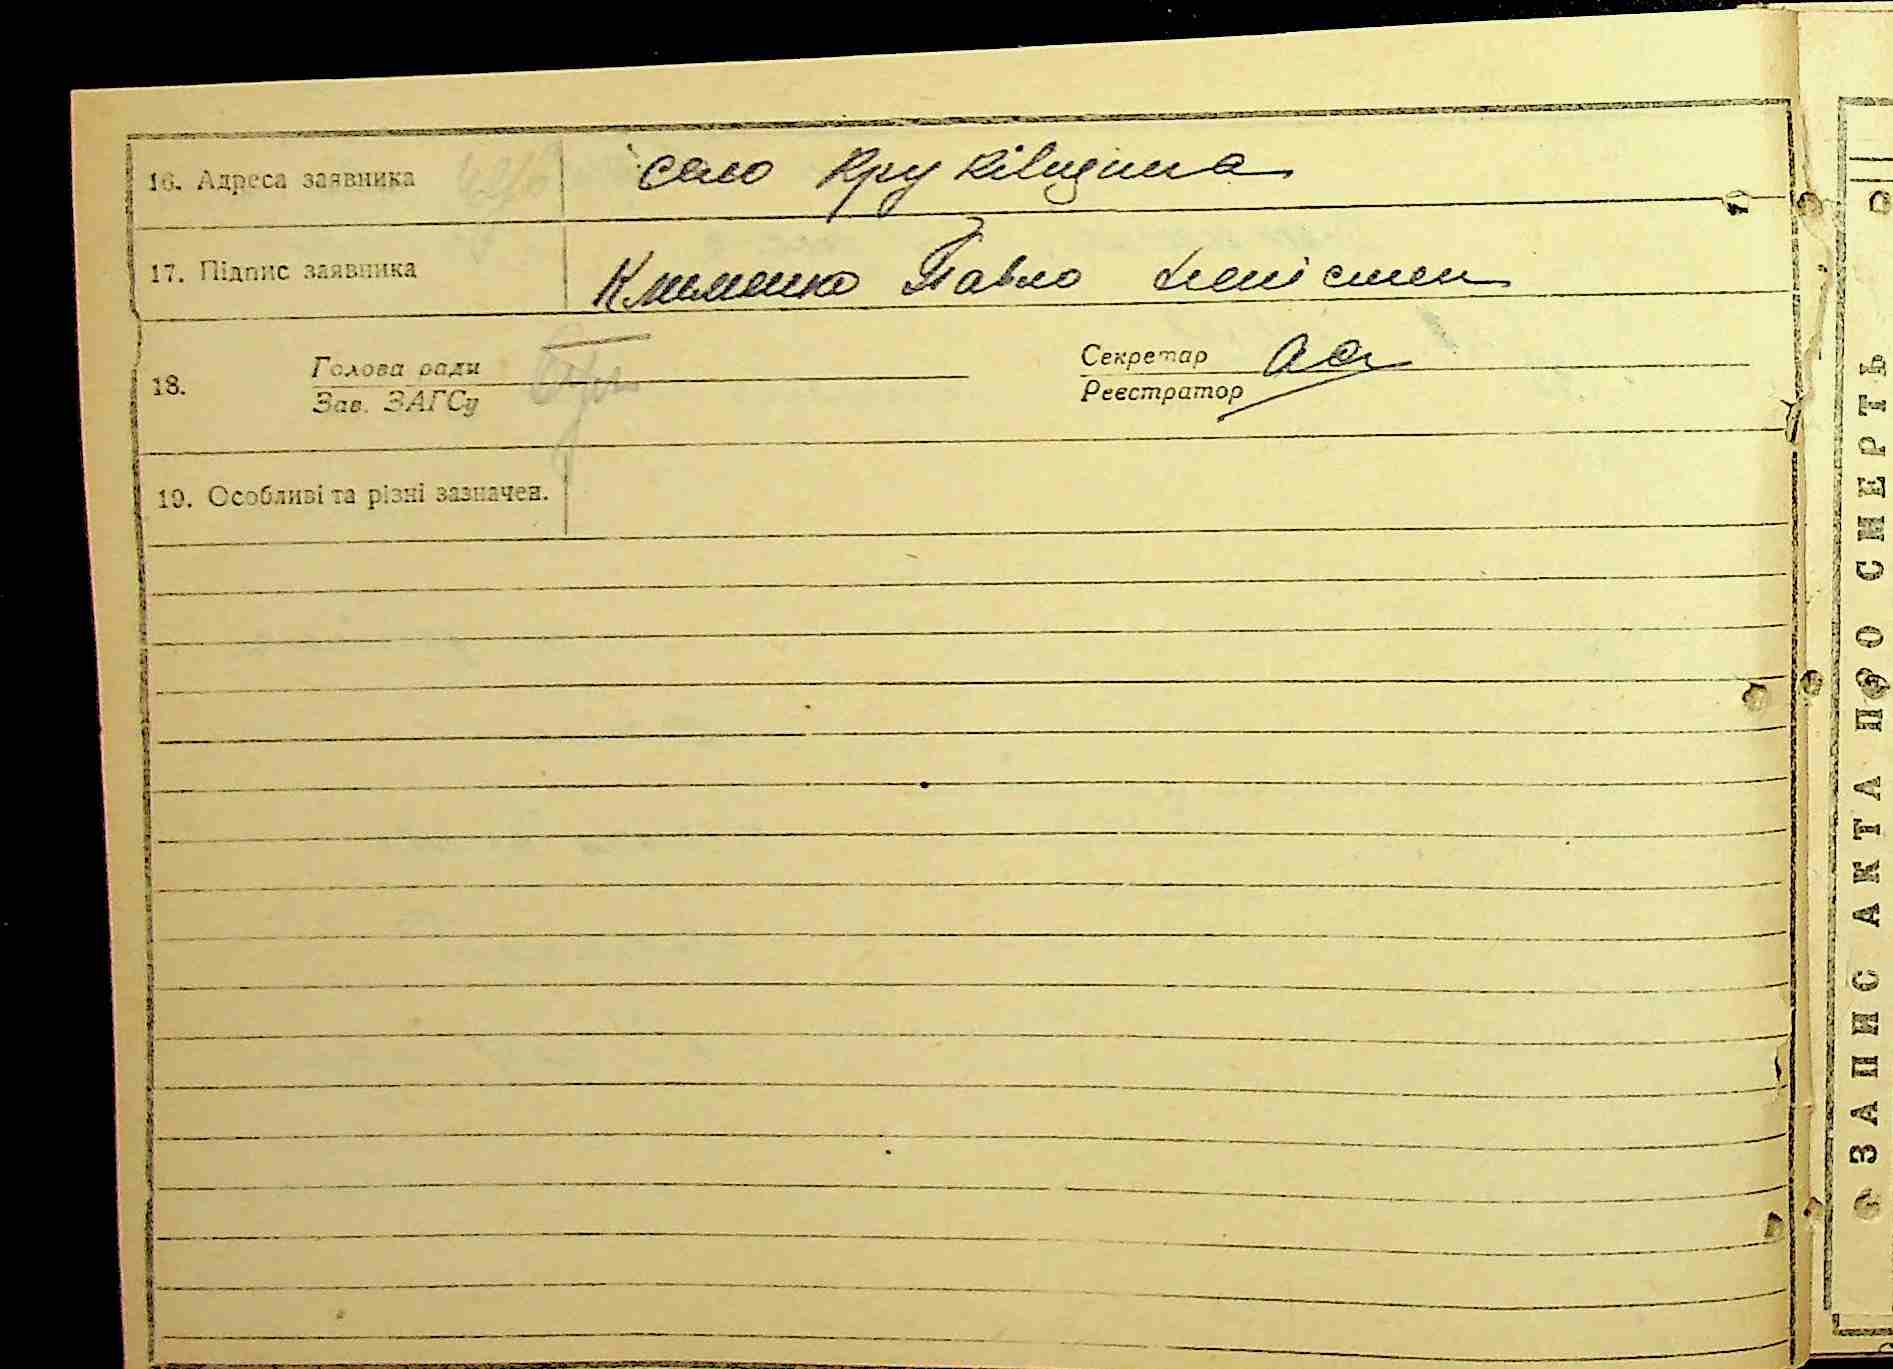 16. Адреса заявника село Круківщина
17. Підпис заявника Клименко Павло
18. Голова ради Секретар
Зав. ЗАГСу Реєстратор
19. Особливі та різні зазначен.
ЗАПИС АКТА ПРО СМЕРТЬ